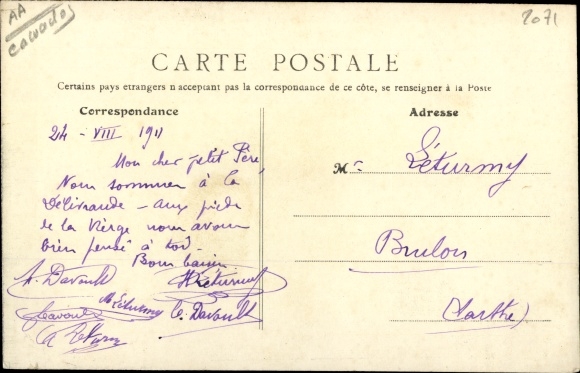 AA
Calvados
2071
CARTE POSTALE
Certains pays etrangers n acceptant pas la correspondance de ce côte, se renseigner à la Poste
Correspondance
Adresse
24 - VIII 1911
Mon cher petit Père,
Nous sommes à la
Délivrande - aux pieds
de la Vierge nous avons
bien pensé à toi -
Bons baisers
A. Davoult
H Léturmy
Davoult
Léturmy
C. Davoult
Mr Léturmy
Brulon
(Sarthe)